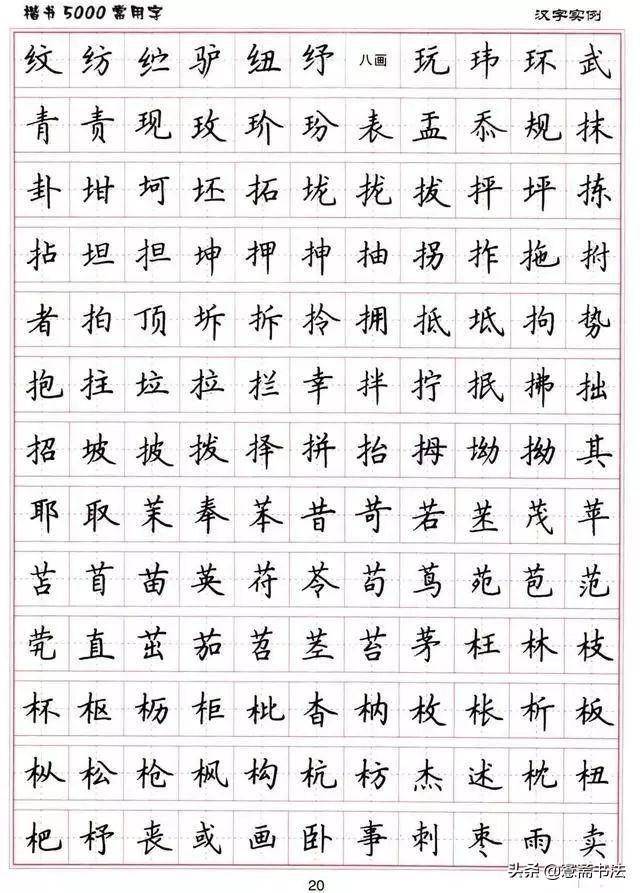 楷书5000常用字 汉字实例
纹 纺 纻 驴 纽 纾 八画 玩 玮 环 武
青 责 现 玫 玠 玢 表 盂 忝 规 抹
卦 坩 坷 坯 拓 垅 拢 拔 抨 坪 拣
拈 坦 担 坤 押 抻 抽 拐 拃 拖 拊
者 拍 顶 坼 拆 拎 拥 抵 坻 拘 势
抱 拄 垃 拉 拦 幸 拌 拧 抿 拂 拙
招 坡 披 拨 择 拚 抬 拇 坳 拗 其
耶 取 茉 奉 苯 昔 苛 若 茂 苹
苫 苜 苗 英 苻 苓 苟 茑 苑 苞 范
茕 直 茁 茄 苕 茎 苔 茅 枉 林 枝
杯 枢 枥 柜 枇 杳 枘 枚 枨 析 板
枞 松 枪 枫 构 杭 枋 杰 述 枕 杻
杷 杼 丧 或 画 卧 事 刺 枣 雨 卖
20
头条 @慧斋书法